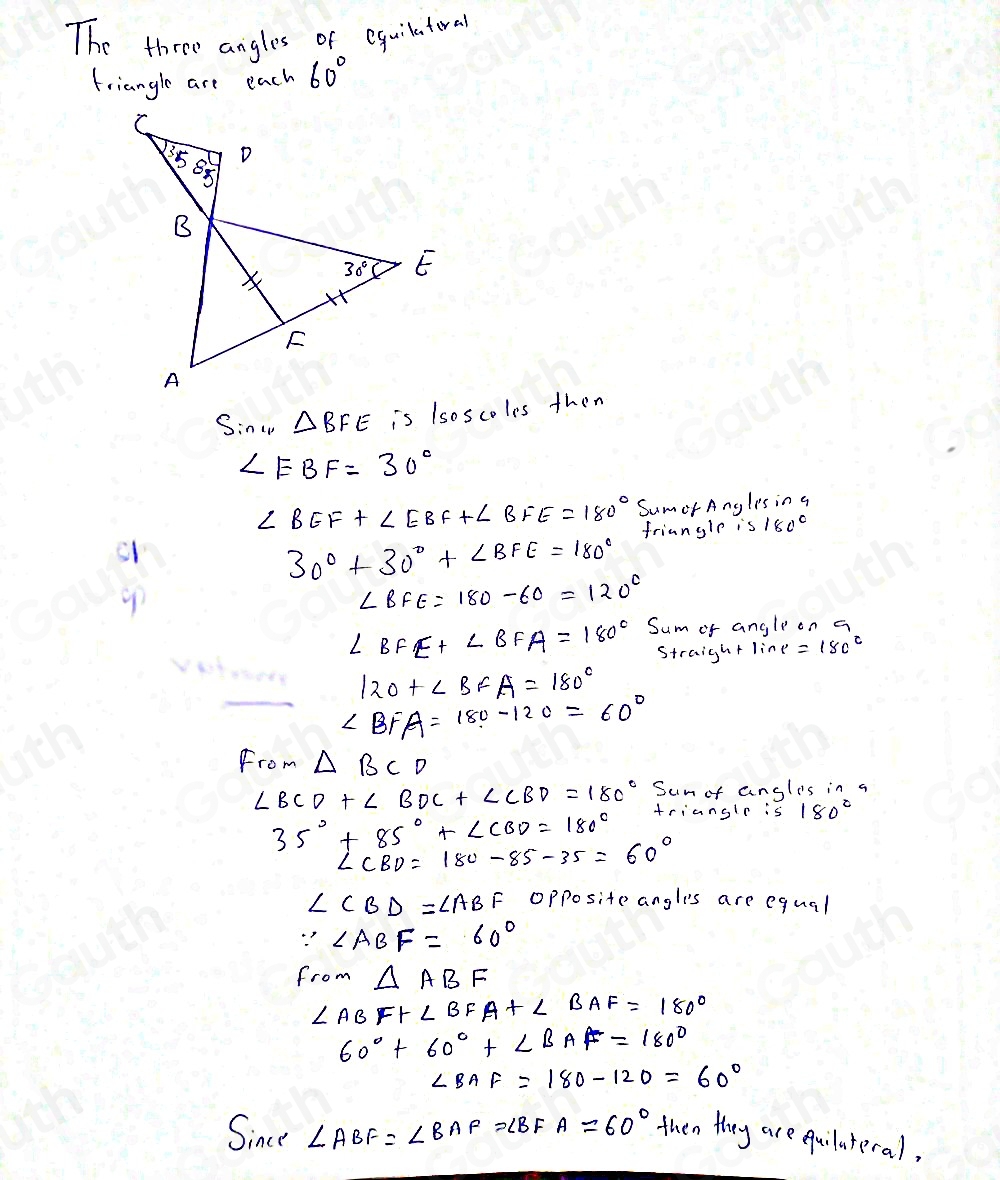 The three angles of equilateral
triangle are each 60°
C
35 85
D
B
30°
E
F
A
Since △BFE is Isosceles then
∠EBF = 30°
∠BEF + ∠EBF + ∠BFE = 180° Sum of Angles in a
triangle is 180°
30° + 30° + ∠BFE = 180°
∠BFE = 180 - 60 = 120°
∠BFE + ∠BFA = 180° Sum of angle on a
straight line = 180°
120 + ∠BFA = 180°
∠BFA = 180 - 120 = 60°
From △ BCD
∠BCD + ∠BDC + ∠CBD = 180° Sum of angles in a
triangle is 180°
35° + 85° + ∠CBD = 180°
∠CBD = 180 - 85 - 35 = 60°
∠CBD = ∠ABF opposite angles are equal
∵ ∠ABF = 60°
from △ ABF
∠ABF + ∠BFA + ∠BAF = 180°
60° + 60° + ∠BAF = 180°
∠BAF = 180 - 120 = 60°
Since ∠ABF = ∠BAF = ∠BFA = 60° then they are equilateral.